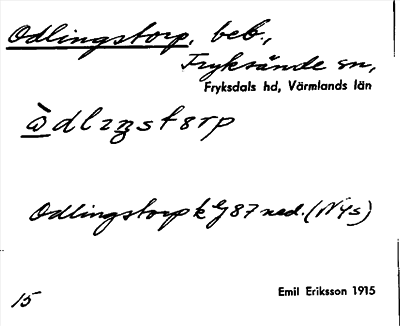 Odlingstorp, beb.,
Fryksände sn,
Fryksdals hd, Värmlands län
Odlingstorp k 87 ned. (Nys)
15
Emil Eriksson 1915